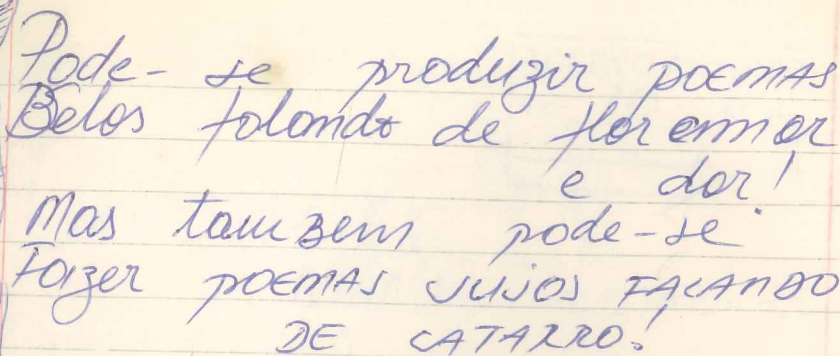 Pode-se produzir poemas
Belos falando de flor amor
e dor!
Mas tambem pode-se
Fazer poemas sujos FALANDO
DE CATARRO!